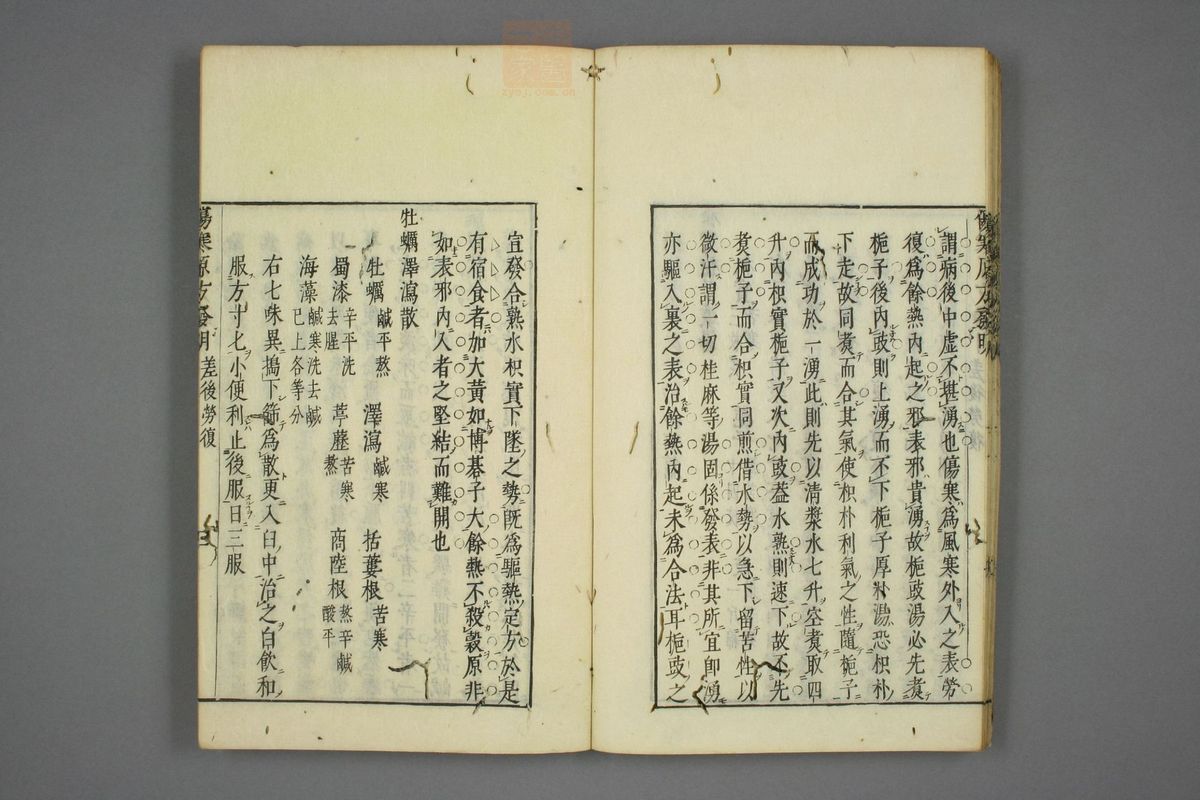 謂病後中虛不堪湧也傷寒爲風寒外入之表勞
復爲餘熱內起之邪表邪貴湧故梔豉湯必先煑
梔子後內豉則上湧而不下梔子厚朴湯恐枳朴
下走故同煑而合其氣使枳朴利氣之性隨梔子
而成功於一湧此則先以清漿水七升空煑取四
升內枳實梔子又次內豉葢水熟則速下故不先
煑梔子而合枳實同煎借水勢以急下留苦性以
微汗謂一切桂麻等湯固係發表非其所宜卽湧
亦驅入裏之表治餘熱內起未爲合法耳梔豉之
宜發合熟水枳實下墜之勢旣爲驅熱定方於是
有宿食者加大黃如博碁子大餘熱不殺穀原非
如表邪內入者之堅結而難開也
牡蠣澤瀉散
牡蠣 鹹平熬 澤瀉 鹹寒 括蔞根 苦寒
蜀漆 辛平洗去腥 葶藶 苦寒熬 商陸根 熬辛鹹酸平
海藻 鹹寒洗去鹹已上各等分
右七味異搗下篩爲散更入臼中治之白飮和
服方寸七小便利止後服日三服
傷寒原方發明 差後勞復